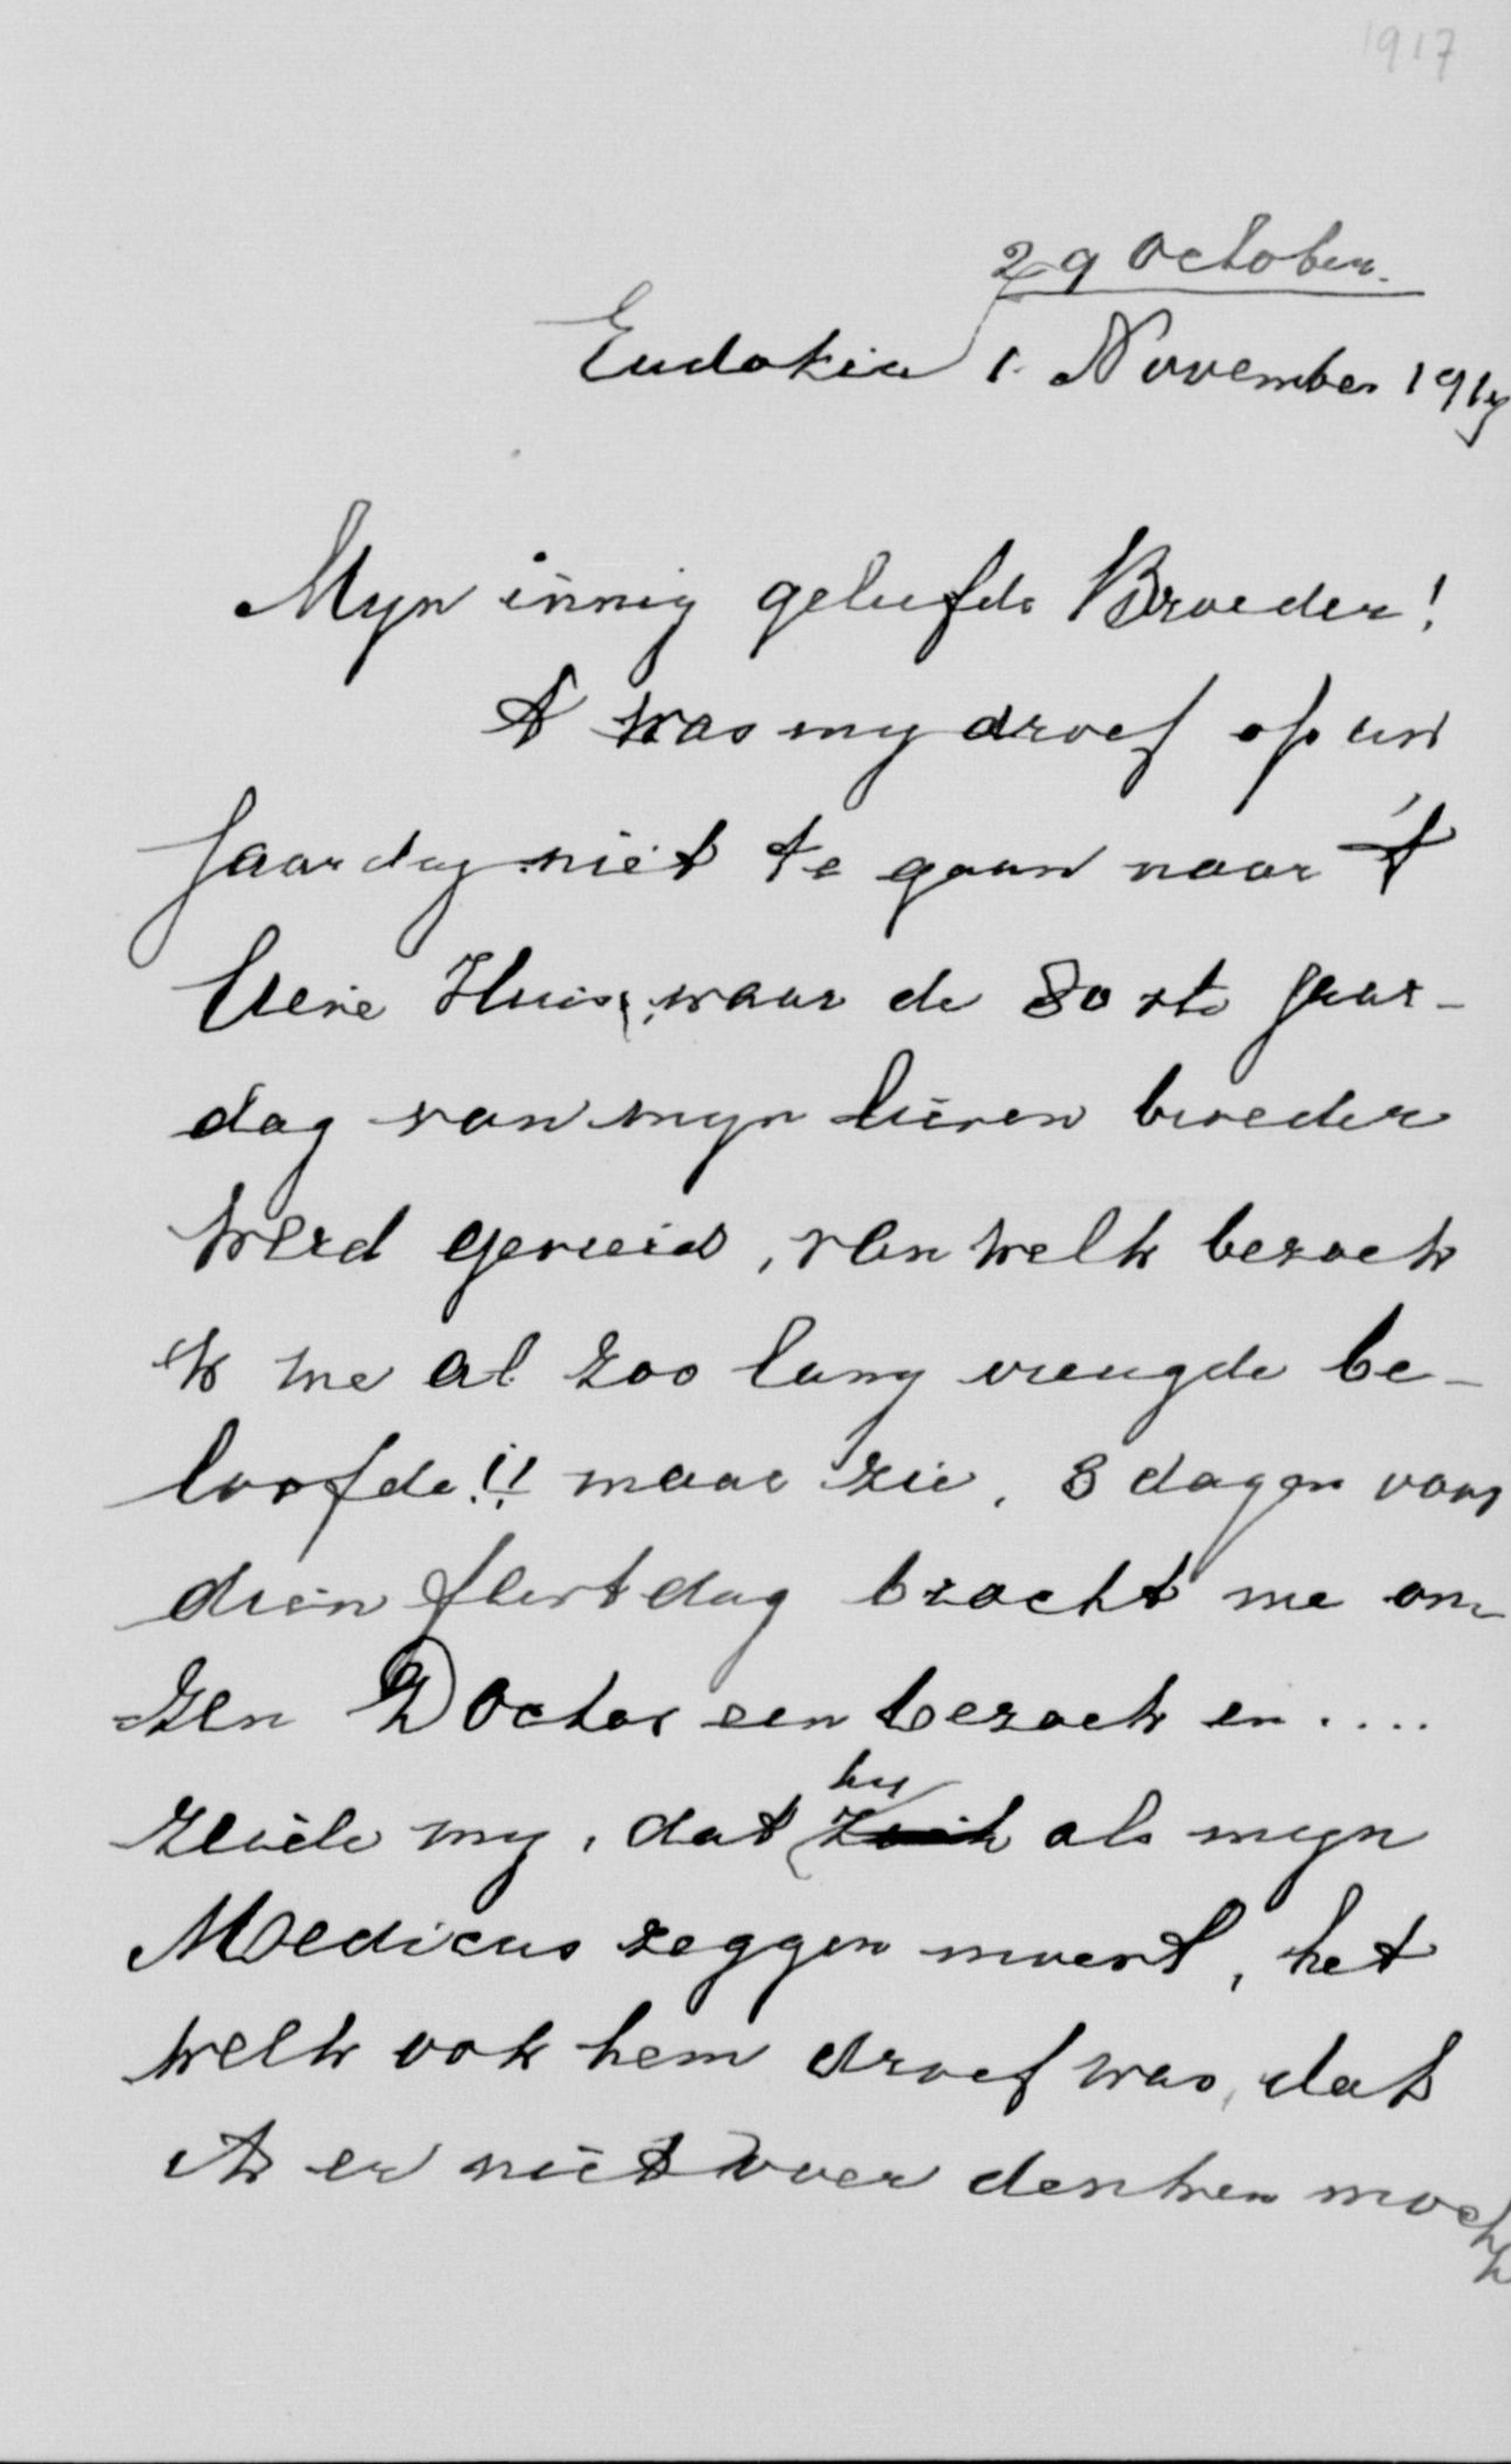 1917
29 October.
Eudokia 1. November 1917
Myn innig geliefde Broeder!
't was my droef op uw
Jaardag niet te gaan naar 't
lieve Huis, waar de 80ste Jaar-
dag van myn lieven broeder
werd gevierd, van welk bezoek
ik me al zoo lang vreugde be-
loofde!! maar zie, 8 dagen voor
dien feestdag bracht me on-
zen Doctor een bezoek en ....
zeide my, dat hy als myn
Medicus zeggen moest, het
welk ook hem droef was, dat
ik er niet over denken mocht